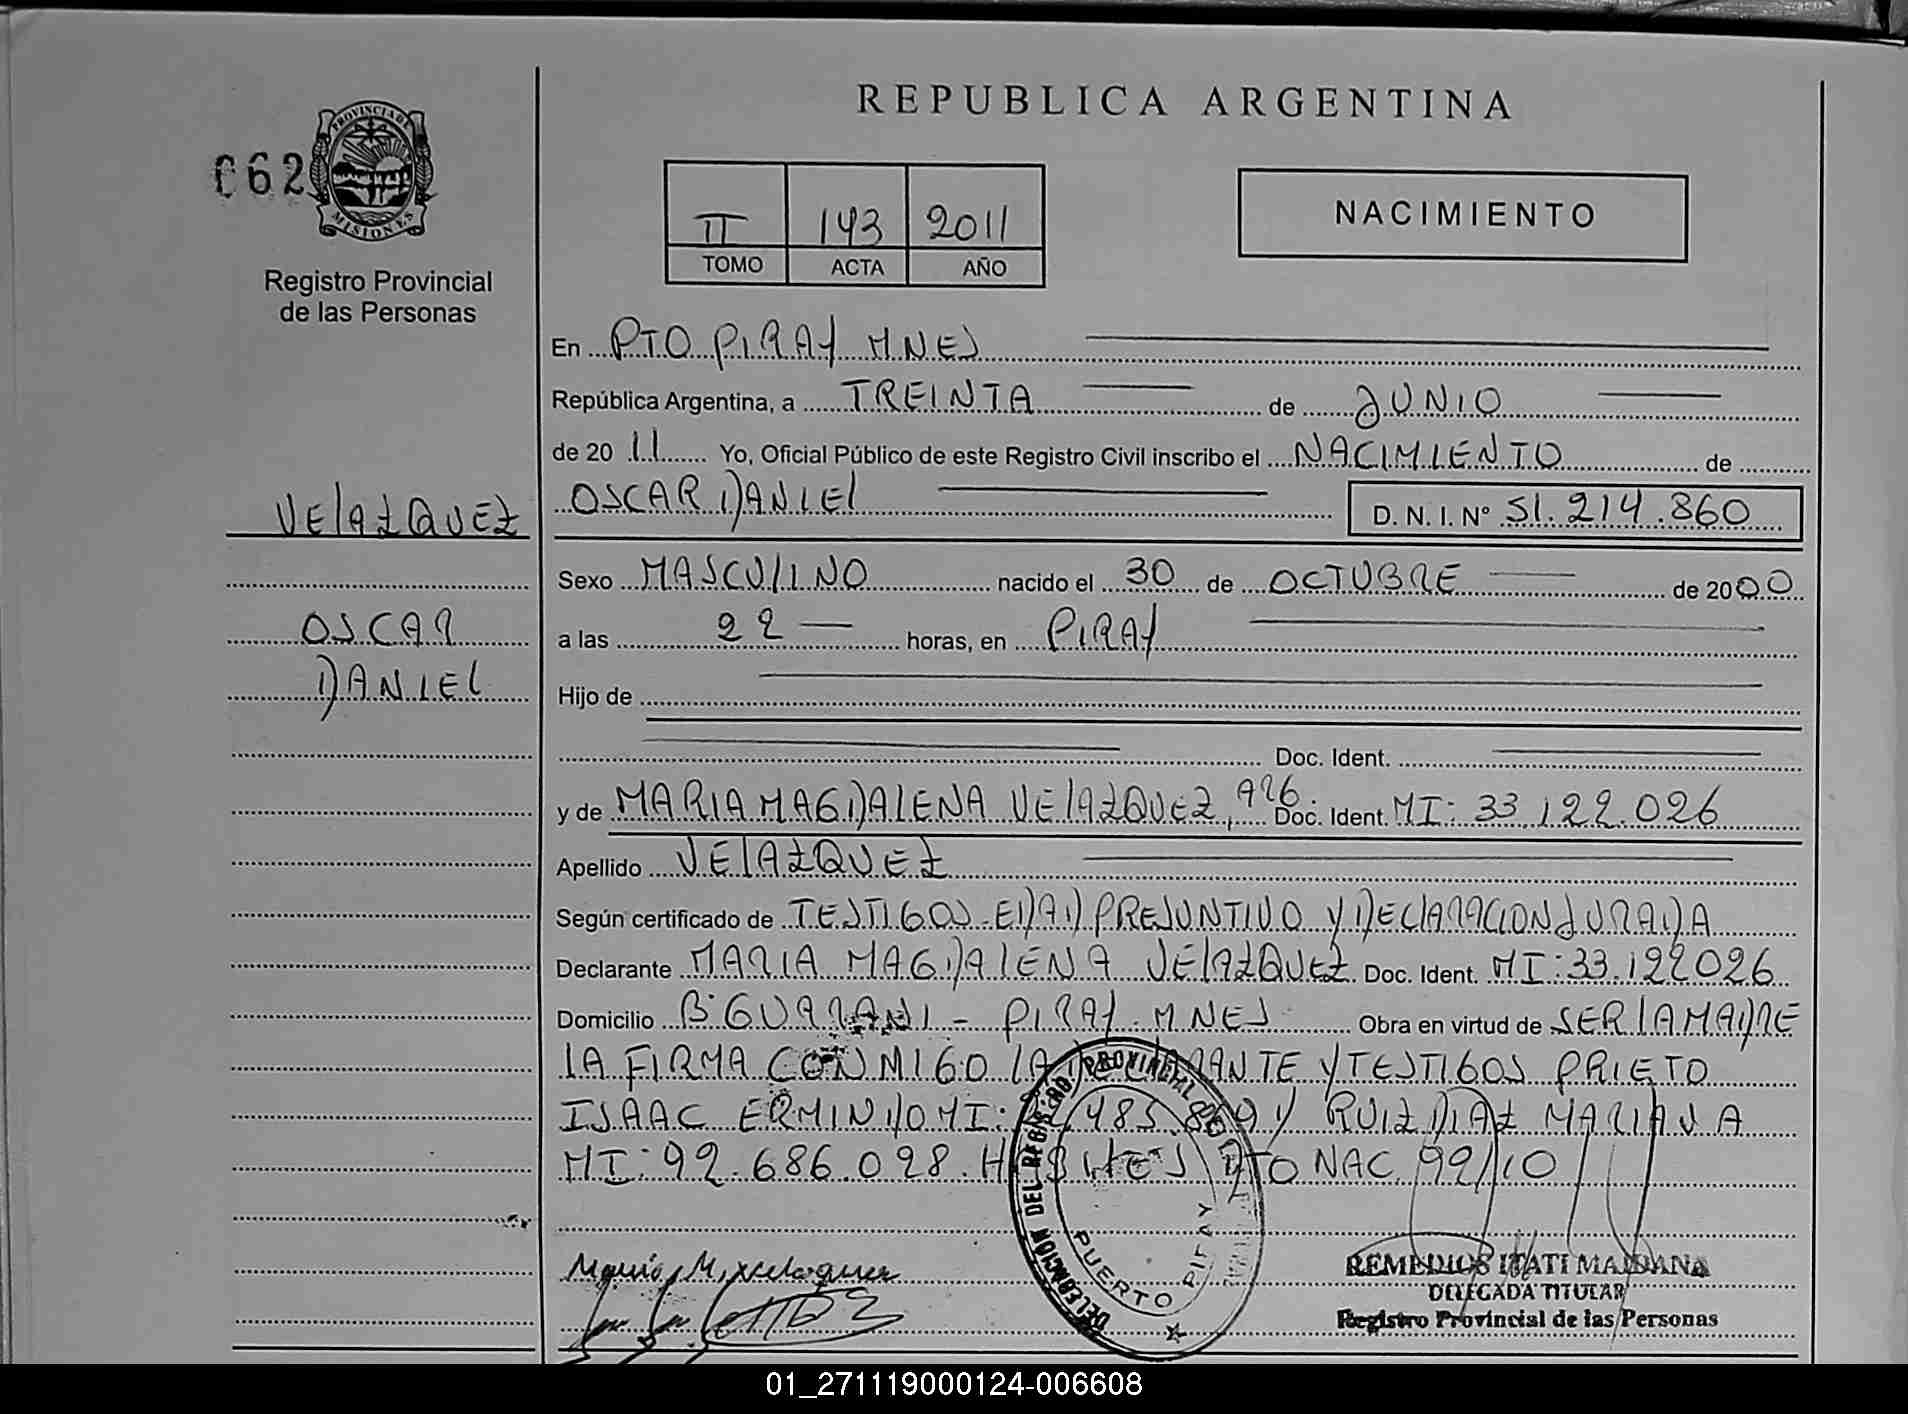 REPUBLICA ARGENTINA
062
PROVINCIA DE
MISIONES
Registro Provincial
de las Personas
II 143 2011
TOMO ACTA AÑO
NACIMIENTO
En PTO PIRAY MNES
República Argentina, a TREINTA de JUNIO
de 20 11 Yo, Oficial Público de este Registro Civil inscribo el NACIMIENTO de
VELAZQUEZ
OSCAR DANIEL D. N. I. N° 51.214.860
Sexo MASCULINO nacido el 30 de OCTUBRE de 2000
OSCAR
a las 22 horas, en PIRAY
DANIEL
Hijo de
Doc. Ident.
y de MARIA MAGDALENA VELAZQUEZ, ARG. Doc. Ident. MI: 33.122.026
Apellido VELAZQUEZ
Según certificado de TESTIGOS-EDAD PRESUNTIVO Y DECLARACION JURADA
Declarante MARIA MAGDALENA VELAZQUEZ Doc. Ident. MI: 33.122026
Domicilio Bº GUARANI - PIRAY. MNES Obra en virtud de SER LA MADRE
LA FIRMA CONMIGO LA DECLARANTE Y TESTIGOS PRIETO
ISAAC ERMINDO MI: 485. Y RUIZ DIAZ MARIANA
MI: 92.686.028. DTO NAC. 92/10
DELEGACION DEL REGISTRO PROVINCIAL DE
PUERTO PIRAY
Maria M. Velazquez
REMEDIOS ITATI MAIDANA
DELEGADA TITULAR
Registro Provincial de las Personas
01_271119000124-006608